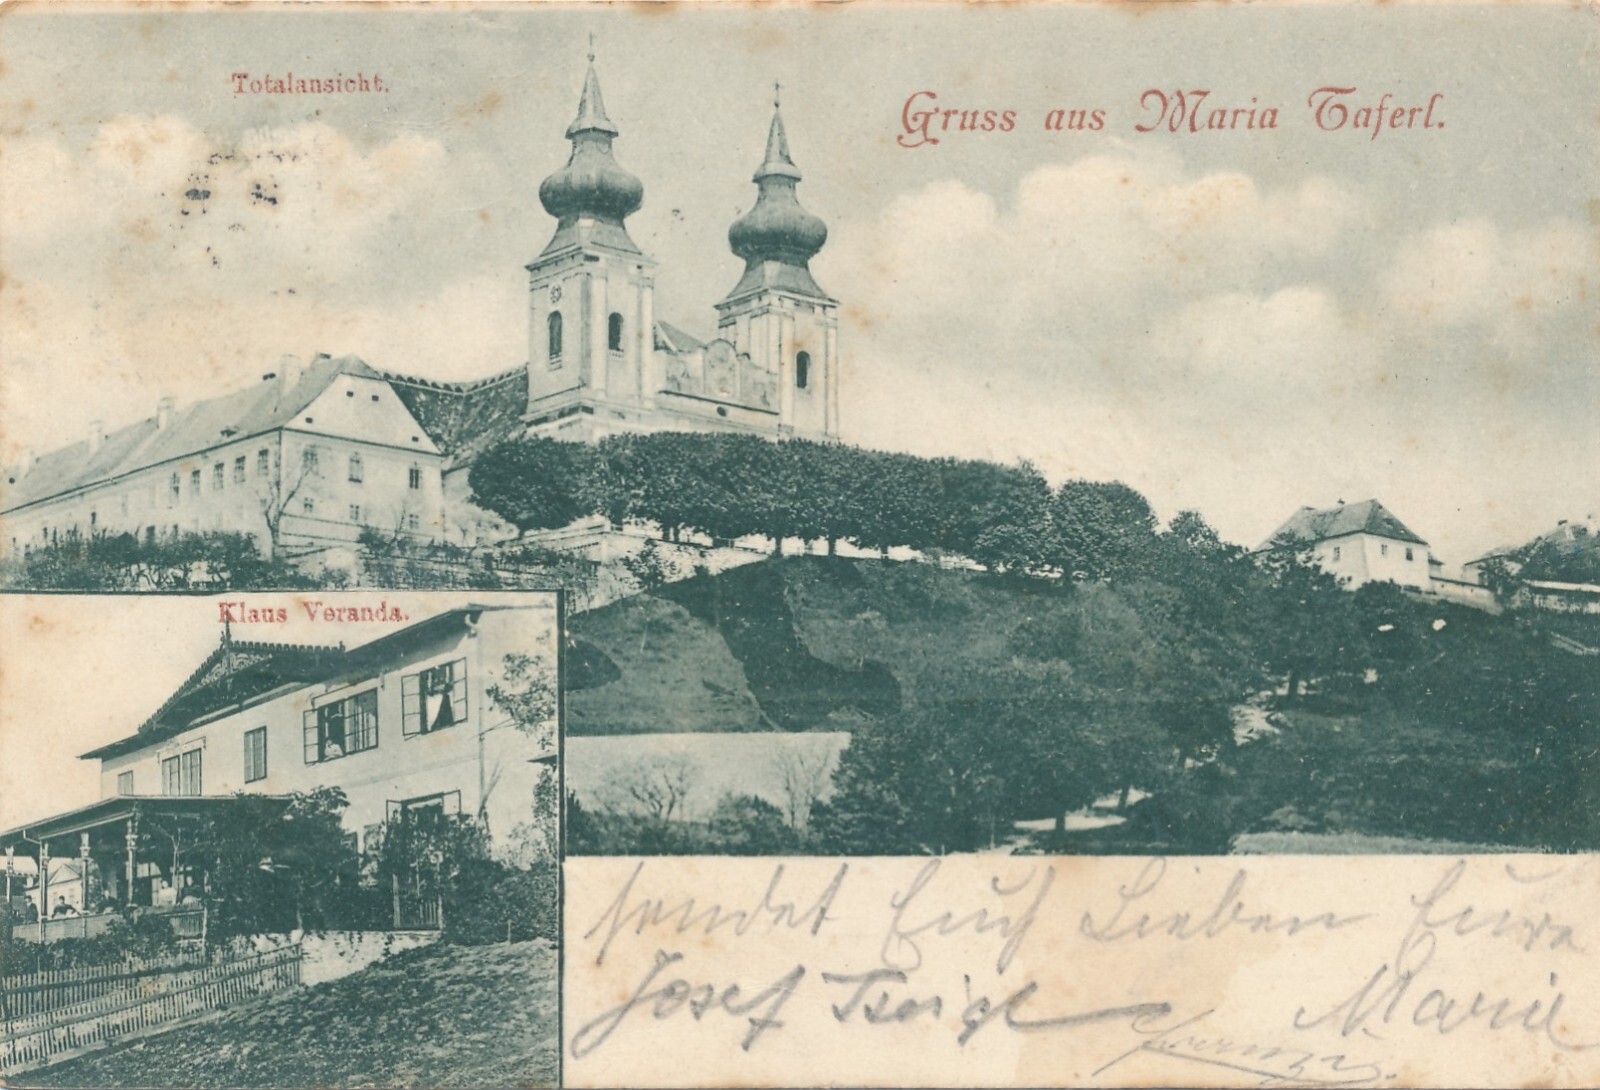 Totalansicht.
Gruss aus Maria Taferl.
Klaus Veranda.
sendet Euch Lieben Eure
Josef Marie